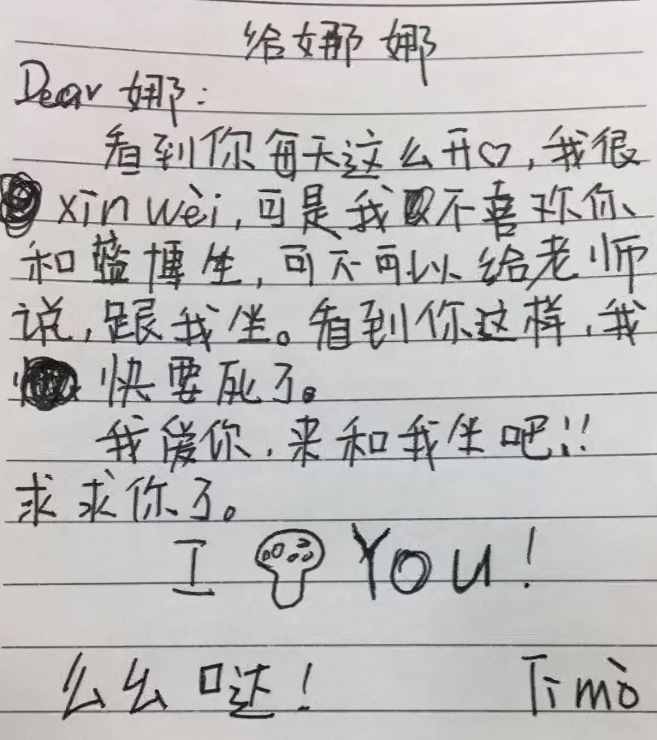 给娜娜
Dear 娜:
看到你每天这么开♡,我很
xin wèi,可是我不喜欢你
和蓝博坐,可不可以给老师
说,跟我坐。看到你这样,我
快要死了。
我爱你,来和我坐吧!!
求求你了。
I You!
么么哒!
Timo